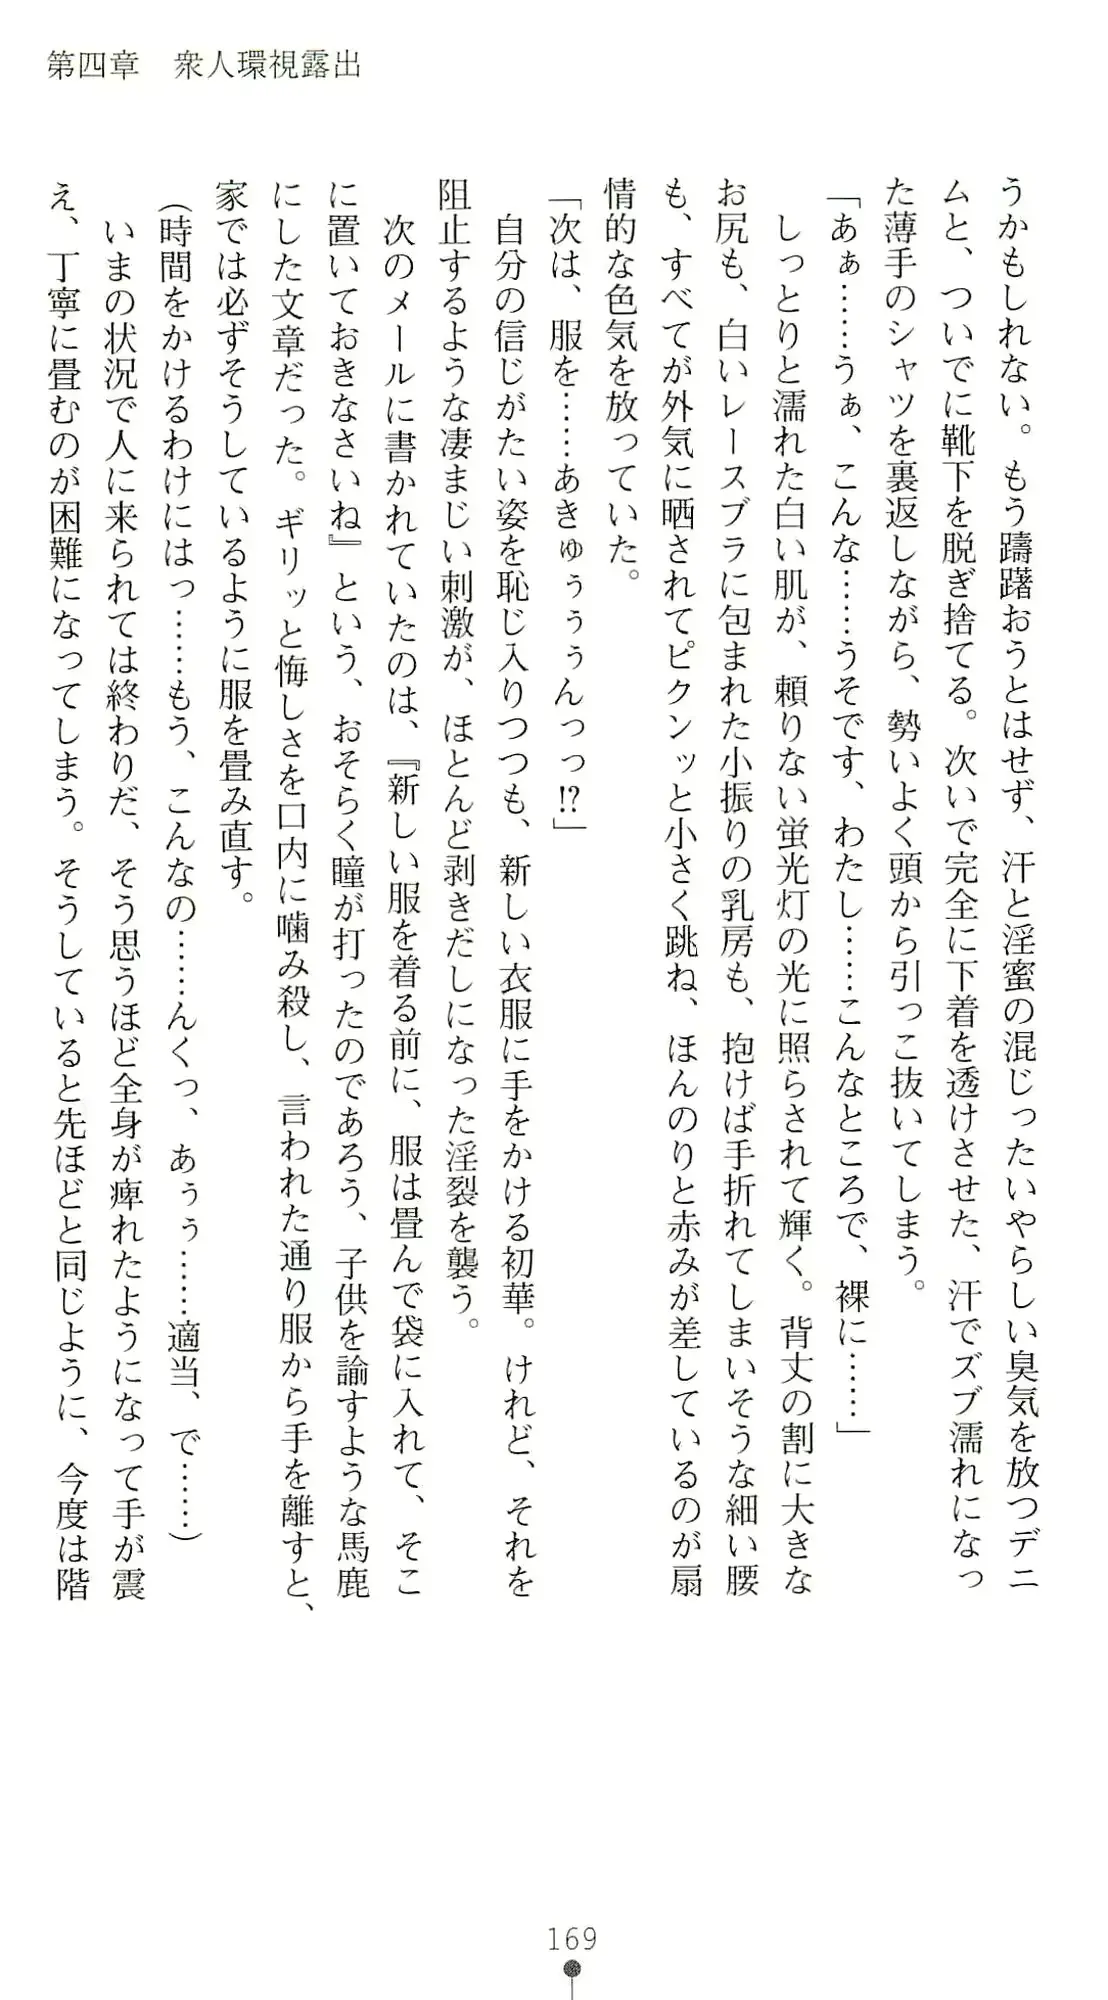 第四章　衆人環視露出
うかもしれない。もう躊躇おうとはせず、汗と淫蜜の混じったいやらしい臭気を放つデニ
ムと、ついでに靴下を脱ぎ捨てる。次いで完全に下着を透けさせた、汗でズブ濡れになっ
た薄手のシャツを裏返しながら、勢いよく頭から引っこ抜いてしまう。
「あぁ……うぁ、こんな……うそです、わたし……こんなところで、裸に……」
しっとりと濡れた白い肌が、頼りない蛍光灯の光に照らされて輝く。背丈の割に大きな
お尻も、白いレースブラに包まれた小振りの乳房も、抱けば手折れてしまいそうな細い腰
も、すべてが外気に晒されてピクンッと小さく跳ね、ほんのりと赤みが差しているのが扇
情的な色気を放っていた。
「次は、服を……あきゅぅぅぅんっっ!?」
自分の信じがたい姿を恥じ入りつつも、新しい衣服に手をかける初華。けれど、それを
阻止するような凄まじい刺激が、ほとんど剥きだしになった淫裂を襲う。
次のメールに書かれていたのは、『新しい服を着る前に、服は畳んで袋に入れて、そこ
に置いておきなさいね』という、おそらく瞳が打ったのであろう、子供を諭すような馬鹿
にした文章だった。ギリッと悔しさを口内に噛み殺し、言われた通り服から手を離すと、
家では必ずそうしているように服を畳み直す。
(時間をかけるわけにはっ……もう、こんなの……んくっ、あぅぅ……適当、で……)
いまの状況で人に来られては終わりだ、そう思うほど全身が痺れたようになって手が震
え、丁寧に畳むのが困難になってしまう。そうしていると先ほどと同じように、今度は階
169